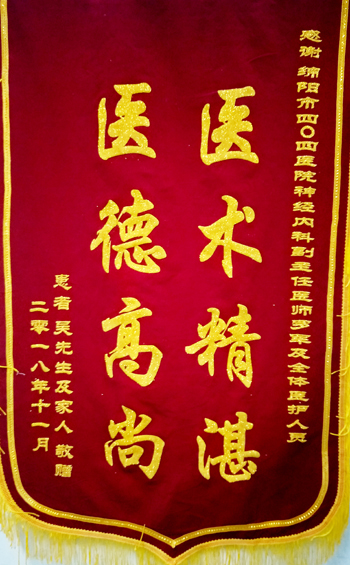 感谢 绵阳市四〇四医院神经内科副主任医师罗军及全体医护人员
医术精湛
医德高尚
患者吴先生及家人 敬赠
二零一八年十一月